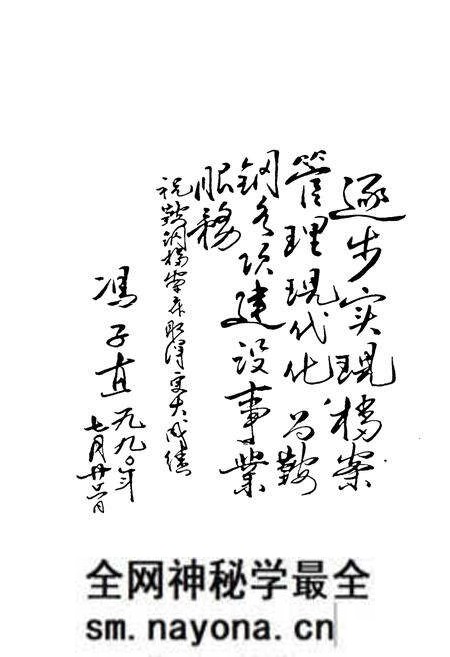 逐步实现档案
管理现代化为鞍
钢各项建设事业
服务
祝鞍钢档案工作取得更大成绩
冯子直 一九九〇年
七月廿六日
全网神秘学最全
sm.nayona.cn